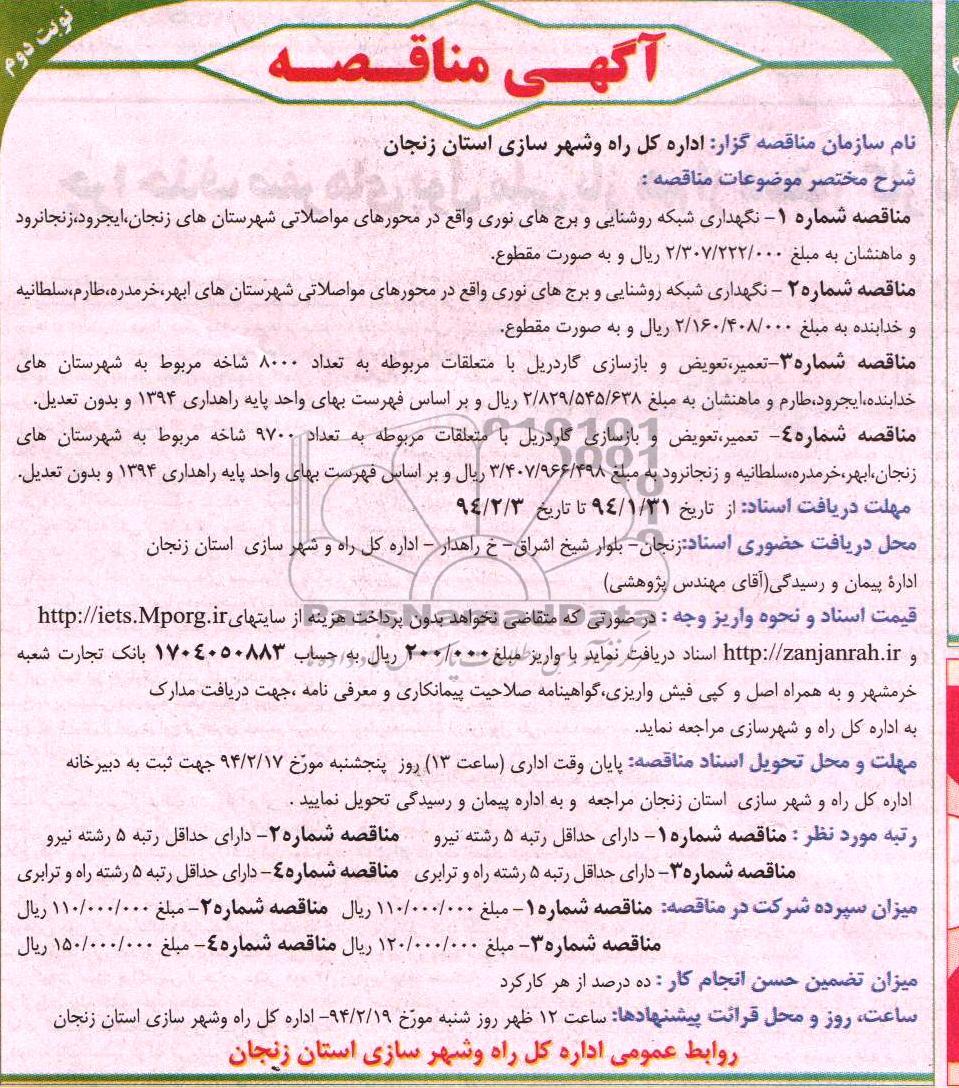 نوبت دوم
آگهی مناقصه
نام سازمان مناقصه گزار: اداره کل راه وشهر سازی استان زنجان
شرح مختصر موضوعات مناقصه :
مناقصه شماره ۱- نگهداری شبکه روشنایی و برج های نوری واقع در محورهای مواصلاتی شهرستان های زنجان،ایجرود،زنجانرود
و ماهنشان به مبلغ ۲/۳۰۷/۲۲۲/۰۰۰ ریال و به صورت مقطوع.
مناقصه شماره۲ - نگهداری شبکه روشنایی و برج های نوری واقع در محورهای مواصلاتی شهرستان های ابهر،خرمدره،طارم،سلطانیه
و خدابنده به مبلغ ۲/۱۶۰/۴۰۸/۰۰۰ ریال و به صورت مقطوع.
مناقصه شماره۳-تعمیر،تعویض و بازسازی گاردریل با متعلقات مربوطه به تعداد ۸۰۰۰ شاخه مربوط به شهرستان های
خدابنده،ایجرود،طارم و ماهنشان به مبلغ ۲/۸۲۹/۵۴۵/۶۳۸ ریال و بر اساس فهرست بهای واحد پایه راهداری ۱۳۹۴ و بدون تعدیل.
مناقصه شماره۴- تعمیر،تعویض و بازسازی گاردریل با متعلقات مربوطه به تعداد ۹۷۰۰ شاخه مربوط به شهرستان های
زنجان،ابهر،خرمدره،سلطانیه و زنجانرود به مبلغ ۳/۴۰۷/۹۶۶/۴۹۸ ریال و بر اساس فهرست بهای واحد پایه راهداری ۱۳۹۴ و بدون تعدیل.
مهلت دریافت اسناد: از تاریخ ۹۴/۱/۳۱ تا تاریخ ۹۴/۲/۳
محل دریافت حضوری اسناد:زنجان- بلوار شیخ اشراق- خ راهدار - اداره کل راه و شهر سازی استان زنجان
ادارهٔ پیمان و رسیدگی(آقای مهندس پژوهشی)
ParsNamadData
قیمت اسناد و نحوه واریز وجه : در صورتی که متقاضی نخواهد بدون پرداخت هزینه از سایتهایhttp://iets.Mporg.ir
و http://zanjanrah.ir اسناد دریافت نماید با واریز مبلغ ۲۰۰/۰۰۰ ریال به حساب ۱۷۰۴۰۵۰۸۸۳ بانک تجارت شعبه
خرمشهر و به همراه اصل و کپی فیش واریزی،گواهینامه صلاحیت پیمانکاری و معرفی نامه ،جهت دریافت مدارک
به اداره کل راه و شهرسازی مراجعه نماید.
مهلت و محل تحویل اسناد مناقصه: پایان وقت اداری (ساعت ۱۳) روز پنجشنبه مورّخ ۹۴/۲/۱۷ جهت ثبت به دبیرخانه
اداره کل راه و شهر سازی استان زنجان مراجعه و به اداره پیمان و رسیدگی تحویل نمایید .
رتبه مورد نظر : مناقصه شماره۱- دارای حداقل رتبه ۵ رشته نیرو مناقصه شماره۲- دارای حداقل رتبه ۵ رشته نیرو
مناقصه شماره۳- دارای حداقل رتبه ۵ رشته راه و ترابری مناقصه شماره۴- دارای حداقل رتبه ۵ رشته راه و ترابری
میزان سپرده شرکت در مناقصه: مناقصه شماره۱- مبلغ ۱۱۰/۰۰۰/۰۰۰ ریال مناقصه شماره۲- مبلغ ۱۱۰/۰۰۰/۰۰۰ ریال
مناقصه شماره۳- مبلغ ۱۲۰/۰۰۰/۰۰۰ ریال مناقصه شماره۴- مبلغ ۱۵۰/۰۰۰/۰۰۰ ریال
میزان تضمین حسن انجام کار : ده درصد از هر کارکرد
ساعت، روز و محل قرائت پیشنهادها: ساعت ۱۲ ظهر روز شنبه مورّخ ۹۴/۲/۱۹- اداره کل راه وشهر سازی استان زنجان
روابط عمومی اداره کل راه وشهر سازی استان زنجان